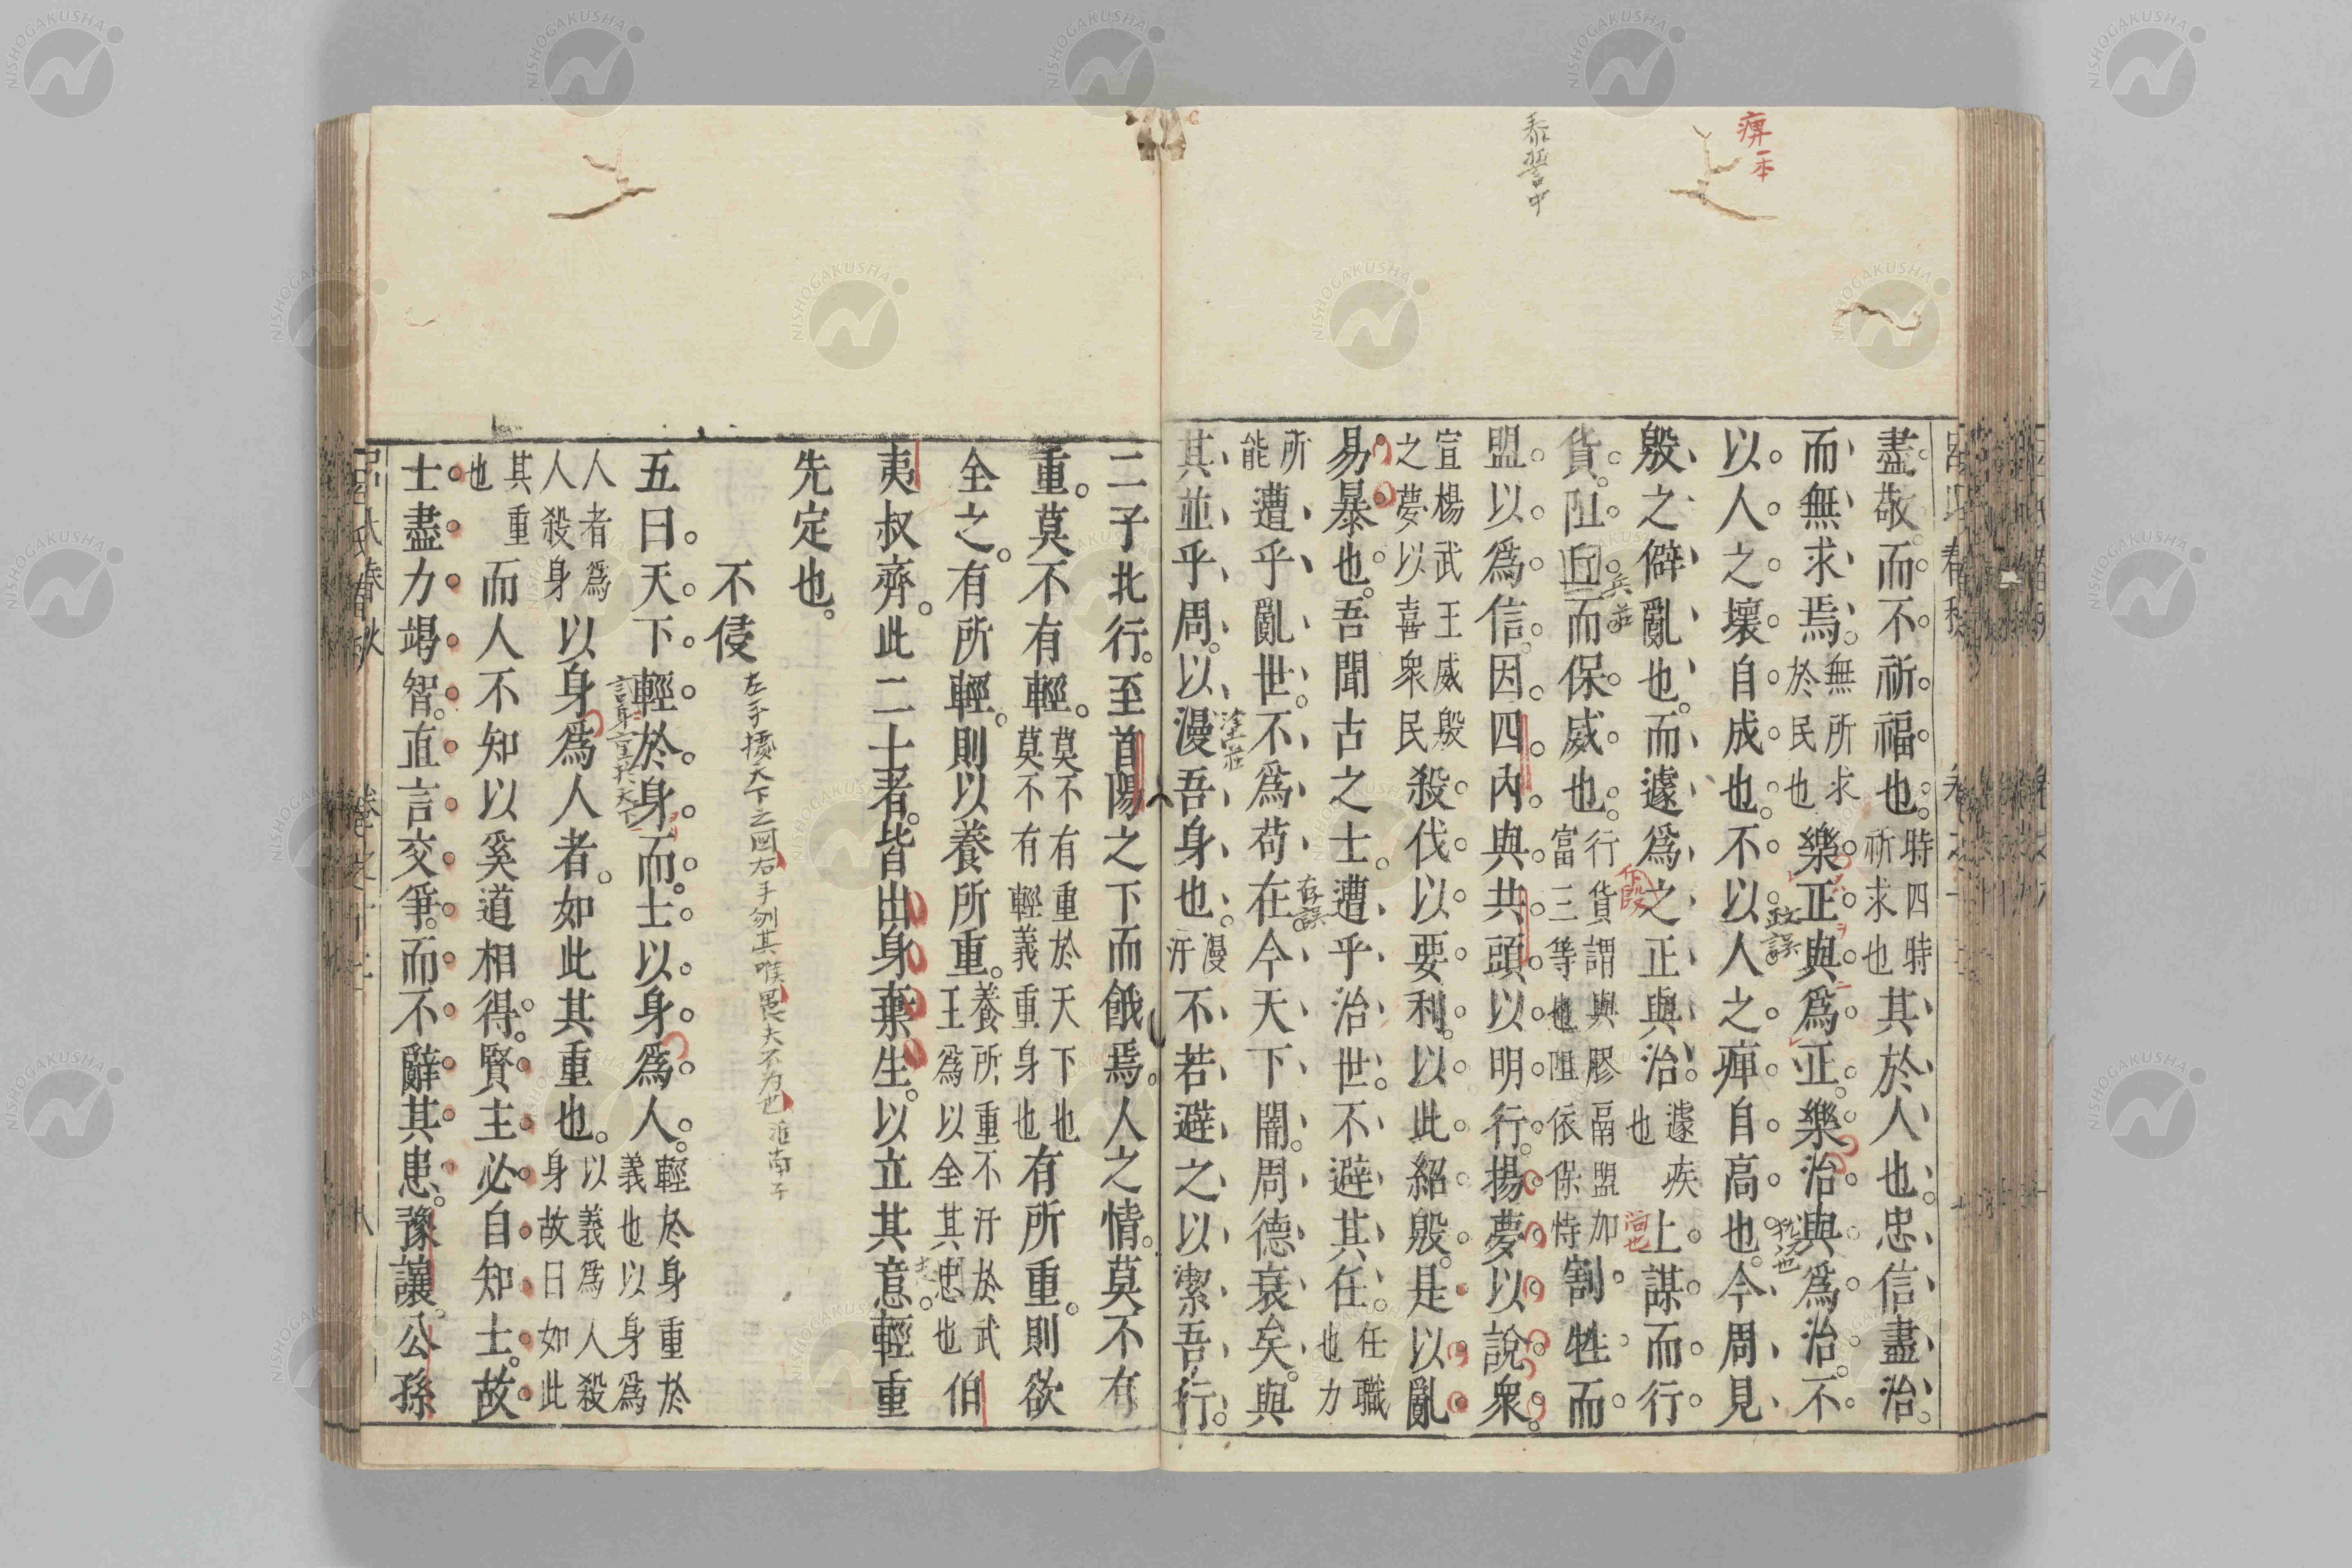 盡敬而不祈福也時四時祈求也其於人也忠信盡治
而無求焉無所求於民也樂正與爲正樂治與爲治不
以人之壞自成也不以人之庳自高也今周見
殷之僻亂也而遽爲之正與治遽疾也上謀而行
貨阻丘而保威也行貨謂與膠鬲盟加富三等也阻依保恃割牲而
盟以爲信因四內與共頭以明行揚夢以說衆
宣楊武王威殷之夢以喜衆民殺伐以要利以此紹殷是以亂
易暴也吾聞古之士遭乎治世不避其任任職也力
所能遭乎亂世不爲苟在今天下闇周德衰矣與
其並乎周以漫吾身也漫汙不若避之以潔吾行
二子北行至首陽之下而餓焉人之情莫不有
重莫不有輕莫不有重於天下也莫不有輕義重身也有所重則欲
全之有所輕則以養所重養所重不汙於武王爲以全其忠也伯
夷叔齊此二士者皆出身棄生以立其意輕重
先定也
不侵
左手據天下之圖右手刎其喉愚夫不爲也淮南子
五曰天下輕於身而士以身爲人輕於身重於義也以身爲
人者爲人殺身以身爲人者如此其重也以義爲人殺身故曰如此
其重也而人不知以奚道相得賢主必自知士故
士盡力竭智直言交爭而不辭其患豫讓公孫
泰誓中
一本
兵莊
政誤
存誤
塗莊
呂氏春秋
八